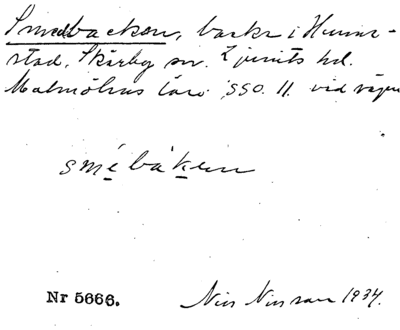 Smedbacken, backe i Hunne-
stad, Skårby sn. Ljunits hd.
Malmöhus län. SSO. 11. vid vägen
smébákein
Nr 5666.
Nils Nilsson 1934.